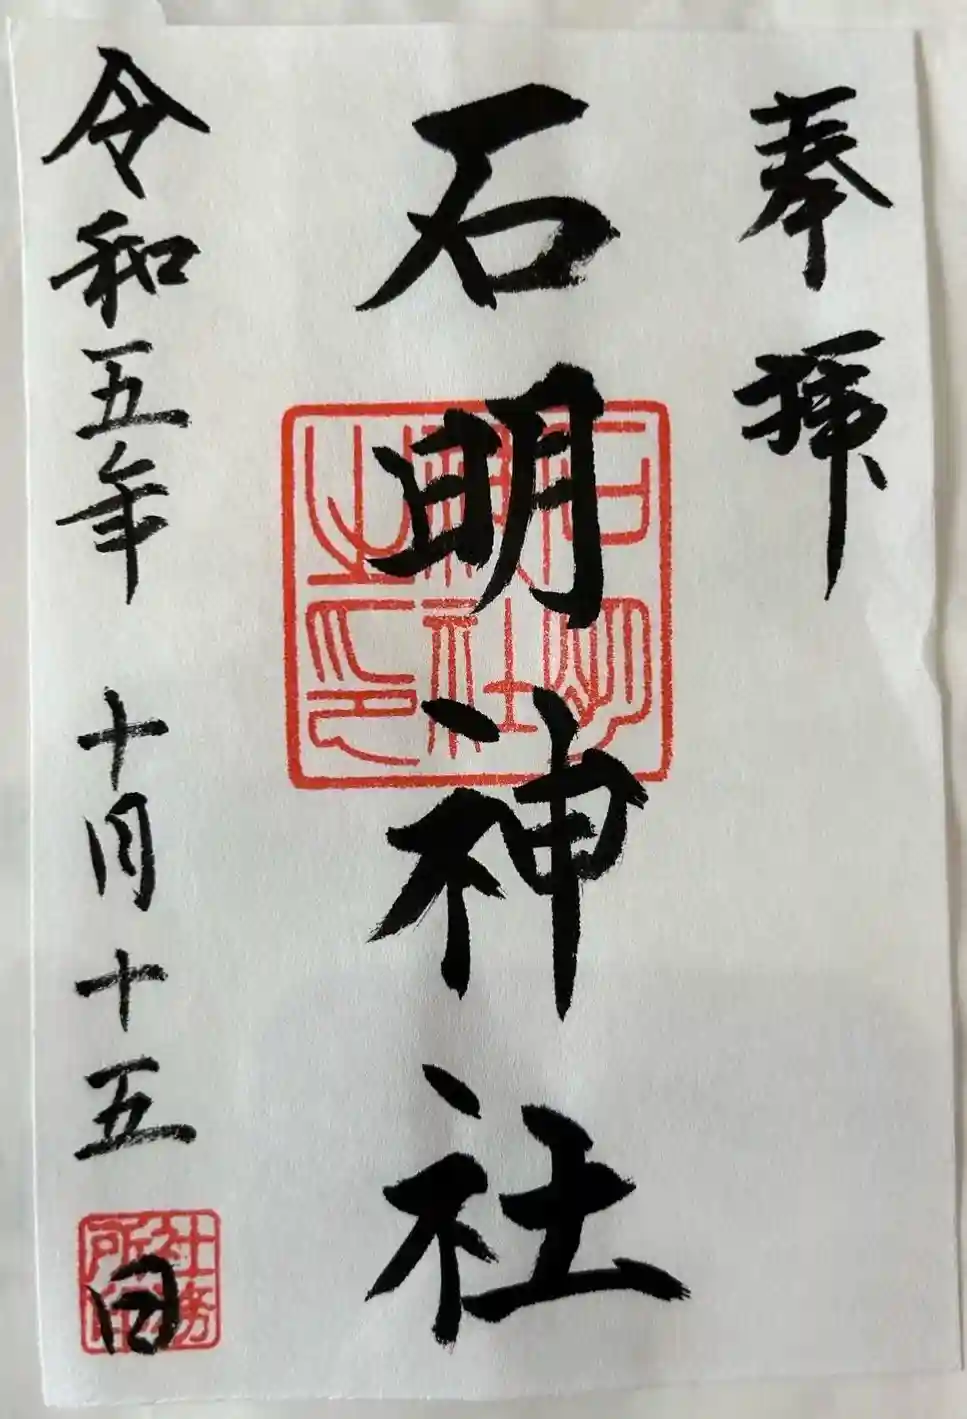 奉拝
石明神社
石明
神社
之印
令和五年 十月十五日
社務
所印